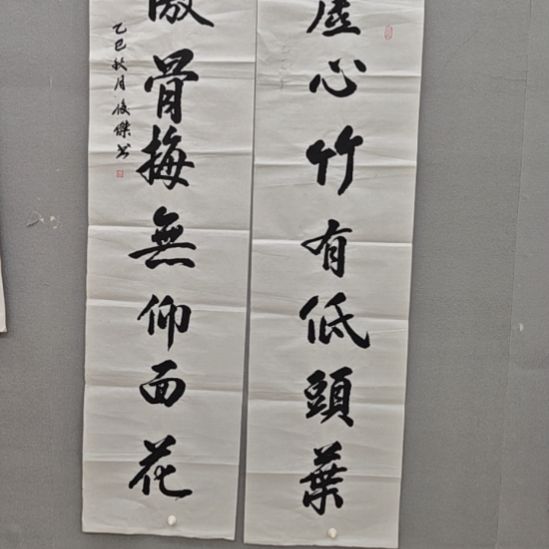 虛心竹有低頭葉
傲骨梅無仰面花
乙巳秋月俊傑书